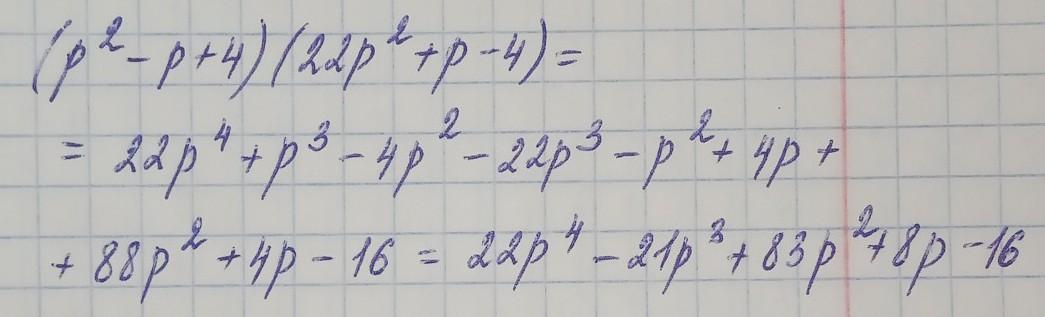 (p² - p + 4)(22p² + p - 4) =
= 22p⁴ + p³ - 4p² - 22p³ - p² + 4p +
+ 88p² + 4p - 16 = 22p⁴ - 21p³ + 83p² + 8p - 16